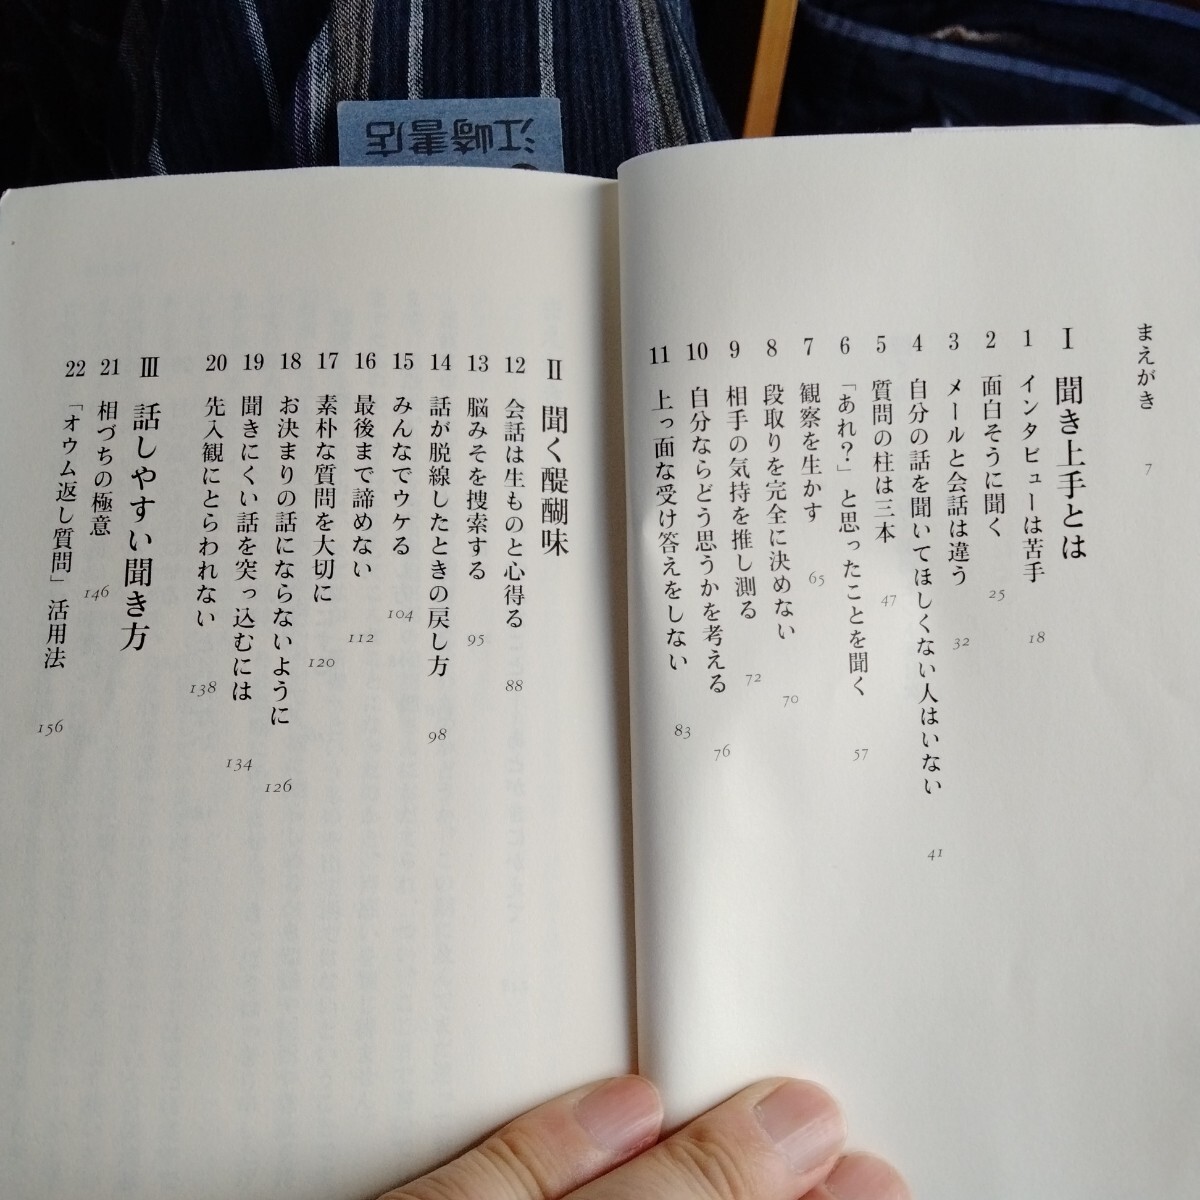 江崎書店
まえがき 7
I 聞き上手とは
1 インタビューは苦手 18
2 面白そうに聞く 25
3 メールと会話は違う 32
4 自分の話を聞いてほしくない人はいない 41
5 質問の柱は三本 47
6 「あれ?」と思ったことを聞く 57
7 観察を生かす 65
8 段取りを完全に決めない 70
9 相手の気持を推し測る 72
10 自分ならどう思うかを考える 76
11 上っ面な受け答えをしない 83
II 聞く醍醐味
12 会話は生ものと心得る 88
13 脳みそを捜索する 95
14 話が脱線したときの戻し方 98
15 みんなでウケる 104
16 最後まで諦めない 112
17 素朴な質問を大切に 120
18 お決まりの話にならないように 126
19 聞きにくい話を突っ込むには 134
20 先入観にとらわれない 138
III 話しやすい聞き方
21 相づちの極意 146
22 「オウム返し質問」活用法 156